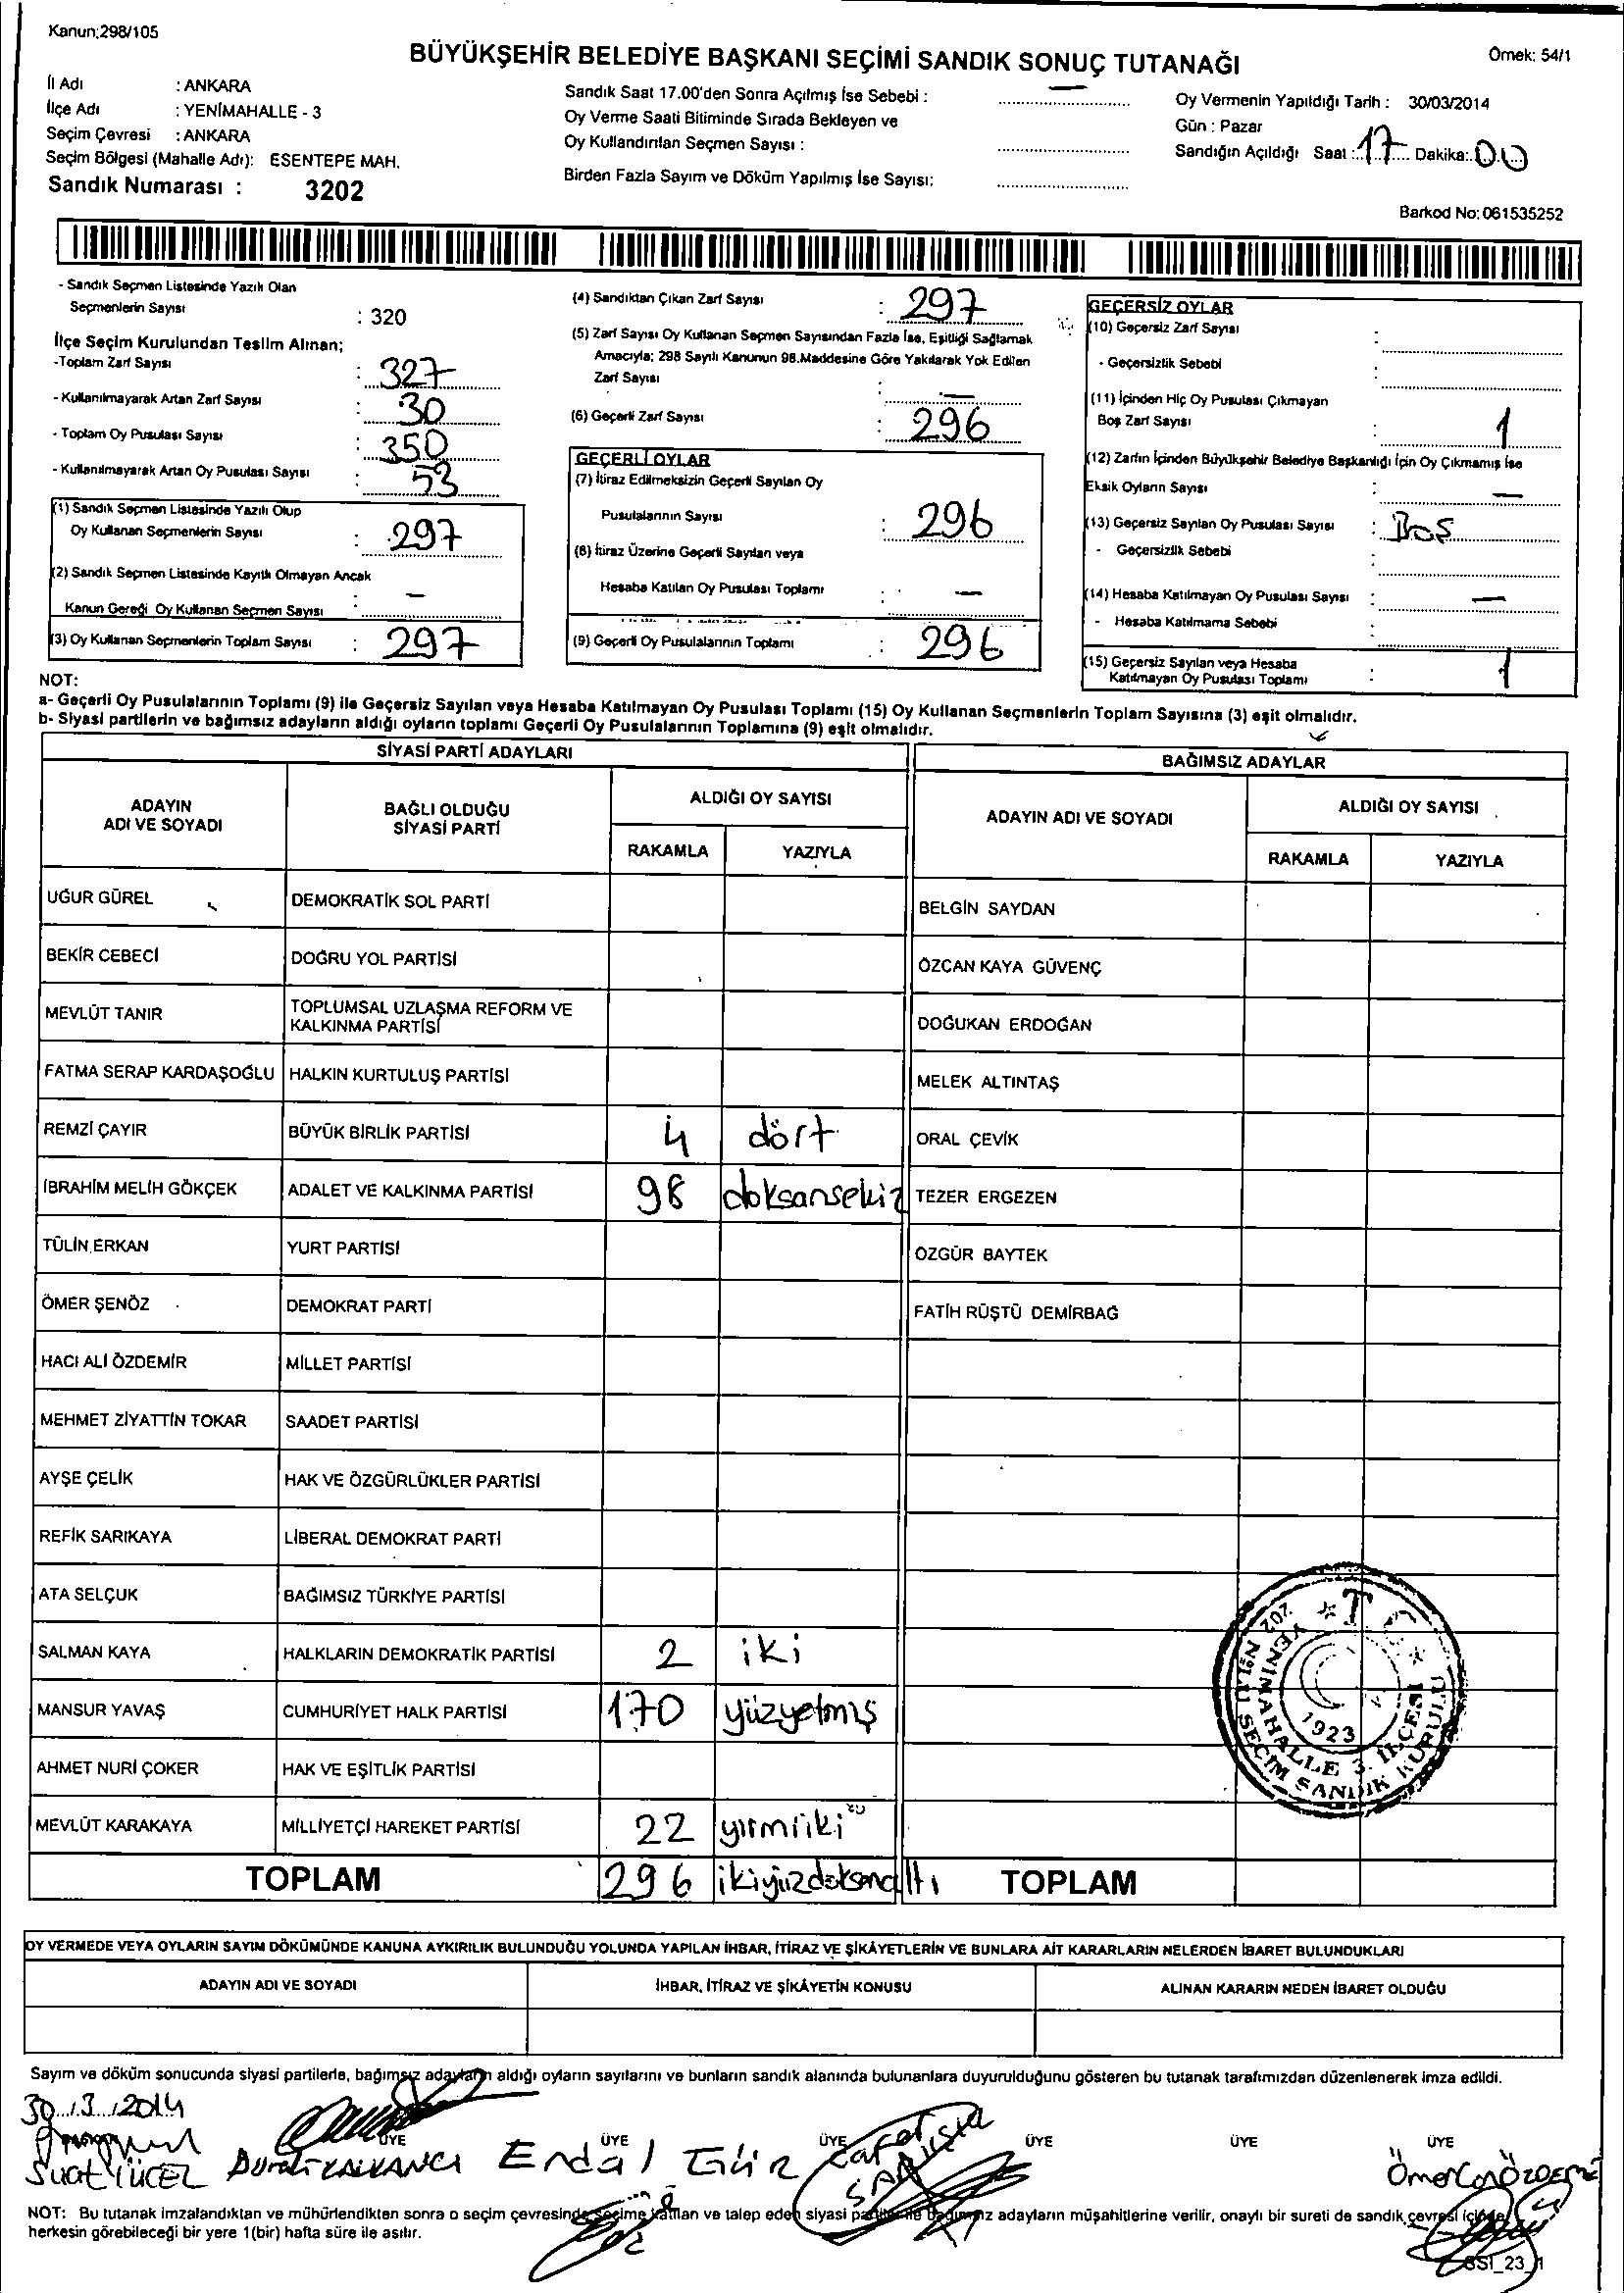 Kanun;298/105
BÜYÜKŞEHİR BELEDİYE BAŞKANI SEÇİMİ SANDIK SONUÇ TUTANAĞI
Örnek: 54/1
İl Adı : ANKARA
İlçe Adı : YENİMAHALLE - 3
Seçim Çevresi : ANKARA
Seçim Bölgesi (Mahalle Adı): ESENTEPE MAH.
Sandık Numarası : 3202
Sandık Saat 17.00'den Sonra Açılmış İse Sebebi : —
Oy Verme Saati Bitiminde Sırada Bekleyen ve
Oy Kullandırılan Seçmen Sayısı :
Birden Fazla Sayım ve Döküm Yapılmış İse Sayısı:
Oy Vermenin Yapıldığı Tarih : 30/03/2014
Gün : Pazar
Sandığın Açıldığı Saat : 17 Dakika: 00
Barkod No: 061535252
- Sandık Seçmen Listesinde Yazılı Olan
Seçmenlerin Sayısı : 320
İlçe Seçim Kurulundan Teslim Alınan;
-Toplam Zarf Sayısı : 327
- Kullanılmayarak Artan Zarf Sayısı : 30
- Toplam Oy Pusulası Sayısı : 350
- Kullanılmayarak Artan Oy Pusulası Sayısı : 53
(1) Sandık Seçmen Listesinde Yazılı Olup
Oy Kullanan Seçmenlerin Sayısı : 297
(2) Sandık Seçmen Listesinde Kayıtlı Olmayan Ancak
Kanun Gereği Oy Kullanan Seçmen Sayısı : —
(3) Oy Kullanan Seçmenlerin Toplam Sayısı : 297
(4) Sandıktan Çıkan Zarf Sayısı : 297
(5) Zarf Sayısı Oy Kullanan Seçmen Sayısından Fazla İse, Eşitliği Sağlamak
Amacıyla; 298 Sayılı Kanunun 98.Maddesine Göre Yakılarak Yok Edilen
Zarf Sayısı : —
(6) Geçerli Zarf Sayısı : 296
GEÇERLİ OYLAR
(7) İtiraz Edilmeksizin Geçerli Sayılan Oy
Pusulalarının Sayısı : 296
(8) İtiraz Üzerine Geçerli Sayılan veya
Hesaba Katılan Oy Pusulası Toplamı : —
(9) Geçerli Oy Pusulalarının Toplamı : 296
GEÇERSİZ OYLAR
(10) Geçersiz Zarf Sayısı :
- Geçersizlik Sebebi :
(11) İçinden Hiç Oy Pusulası Çıkmayan
Boş Zarf Sayısı : 1
(12) Zarfın İçinden Büyükşehir Belediye Başkanlığı İçin Oy Çıkmamış İse
Eksik Oyların Sayısı : —
(13) Geçersiz Sayılan Oy Pusulası Sayısı : Boş
- Geçersizlik Sebebi :
(14) Hesaba Katılmayan Oy Pusulası Sayısı : —
- Hesaba Katılmama Sebebi :
(15) Geçersiz Sayılan veya Hesaba
Katılmayan Oy Pusulası Toplamı : 1
NOT:
a- Geçerli Oy Pusulalarının Toplamı (9) ile Geçersiz Sayılan veya Hesaba Katılmayan Oy Pusulası Toplamı (15) Oy Kullanan Seçmenlerin Toplam Sayısına (3) eşit olmalıdır.
b- Siyasi partilerin ve bağımsız adayların aldığı oyların toplamı Geçerli Oy Pusulalarının Toplamına (9) eşit olmalıdır.
SİYASİ PARTİ ADAYLARI
BAĞIMSIZ ADAYLAR
ADAYIN
ADI VE SOYADI
BAĞLI OLDUĞU
SİYASİ PARTİ
ALDIĞI OY SAYISI
RAKAMLA YAZIYLA
ADAYIN ADI VE SOYADI
ALDIĞI OY SAYISI
RAKAMLA YAZIYLA
UĞUR GÜREL DEMOKRATİK SOL PARTİ BELGİN SAYDAN
BEKİR CEBECİ DOĞRU YOL PARTİSİ ÖZCAN KAYA GÜVENÇ
MEVLÜT TANIR TOPLUMSAL UZLAŞMA REFORM VE
KALKINMA PARTİSİ DOĞUKAN ERDOĞAN
FATMA SERAP KARDAŞOĞLU HALKIN KURTULUŞ PARTİSİ MELEK ALTINTAŞ
REMZİ ÇAYIR BÜYÜK BİRLİK PARTİSİ 4 dört ORAL ÇEVİK
İBRAHİM MELİH GÖKÇEK ADALET VE KALKINMA PARTİSİ 98 doksansekiz TEZER ERGEZEN
TÜLİN ERKAN YURT PARTİSİ ÖZGÜR BAYTEK
ÖMER ŞENÖZ DEMOKRAT PARTİ FATİH RÜŞTÜ DEMİRBAĞ
HACI ALİ ÖZDEMİR MİLLET PARTİSİ
MEHMET ZİYATTİN TOKAR SAADET PARTİSİ
AYŞE ÇELİK HAK VE ÖZGÜRLÜKLER PARTİSİ
REFİK SARIKAYA LİBERAL DEMOKRAT PARTİ
ATA SELÇUK BAĞIMSIZ TÜRKİYE PARTİSİ
SALMAN KAYA HALKLARIN DEMOKRATİK PARTİSİ 2 iki
MANSUR YAVAŞ CUMHURİYET HALK PARTİSİ 170 yüzyetmiş
AHMET NURİ ÇOKER HAK VE EŞİTLİK PARTİSİ
MEVLÜT KARAKAYA MİLLİYETÇİ HAREKET PARTİSİ 22 yirmiiki
TOPLAM 296 ikiyüzdoksanaltı TOPLAM
T.C.
YENİMAHALLE 3. İLÇESİ
202 NO'LU SEÇİM SANDIK KURULU
1923
OY VERMEDE VEYA OYLARIN SAYIM DÖKÜMÜNDE KANUNA AYKIRILIK BULUNDUĞU YOLUNDA YAPILAN İHBAR, İTİRAZ VE ŞİKÂYETLERİN VE BUNLARA AİT KARARLARIN NELERDEN İBARET BULUNDUKLARI
ADAYIN ADI VE SOYADI İHBAR, İTİRAZ VE ŞİKÂYETİN KONUSU ALINAN KARARIN NEDEN İBARET OLDUĞU
Sayım ve döküm sonucunda siyasi partilerle, bağımsız adayların aldığı oyların sayılarını ve bunların sandık alanında bulunanlara duyurulduğunu gösteren bu tutanak tarafımızdan düzenlenerek imza edildi.
30.3.2014
ÜYE ÜYE ÜYE ÜYE ÜYE ÜYE
Suat YÜCEL Erdal
NOT: Bu tutanak imzalandıktan ve mühürlendikten sonra o seçim çevresinde seçime katılan ve talep eden siyasi partiler ile bağımsız adayların müşahitlerine verilir, onaylı bir sureti de sandık çevresi içinde
herkesin görebileceği bir yere 1(bir) hafta süre ile asılır.